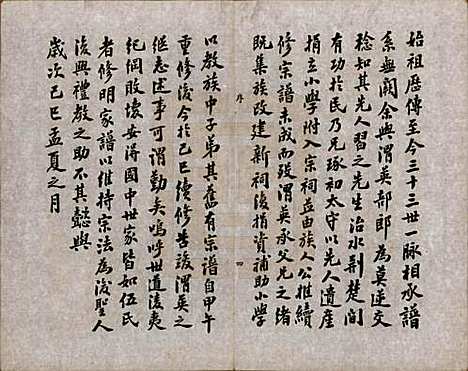 始祖歷傳至今三十三世一脉相承譜
系無闕余與渭英部郎為莫逆交
稔知其先人習之先生治水荆楚間
有功於民乃兄琢初太守以先人遺產
捐立小學附入宗祠並由族人公推續
修宗譜未成而歿渭英承父兄之緒
既集族改建新祠復捐資補助小學
序
四
以教族中子弟其舊有宗譜自甲午
重修後今於己巳續修告竣渭英之
繼志述事可謂勤矣嗚呼世道凌夷
紀綱敗壞安得國中世家皆如伍氏
者修明家譜以維持宗法為後聖人
復興禮教之助不其懿與
歲次己巳孟夏之月